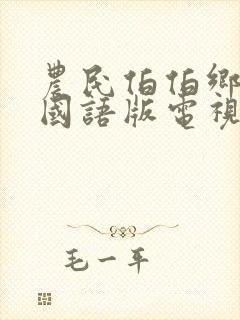 農民伯伯鄉
國語版電視
毛一平